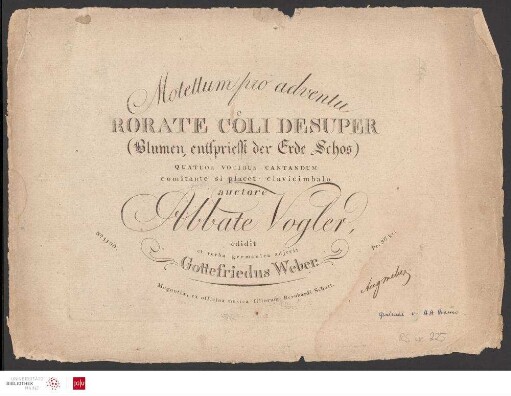 Motettum pro adventu
RORATE CŒLI DESUPER
(Blumen entspriesst der Erde Schos)
QUATUOR VOCIBUS CANTANDUM
comitante si placet clavicimbalo
auctore
Abbate Vogler,
edidit
et verba germanica adjecit
Gottefriedus Weber.
Moguntiae, ex officina musica filiorum Bernhardi Schott.
UNIVERSITÄTS
BIBLIOTHEK
MAINZ
JGU